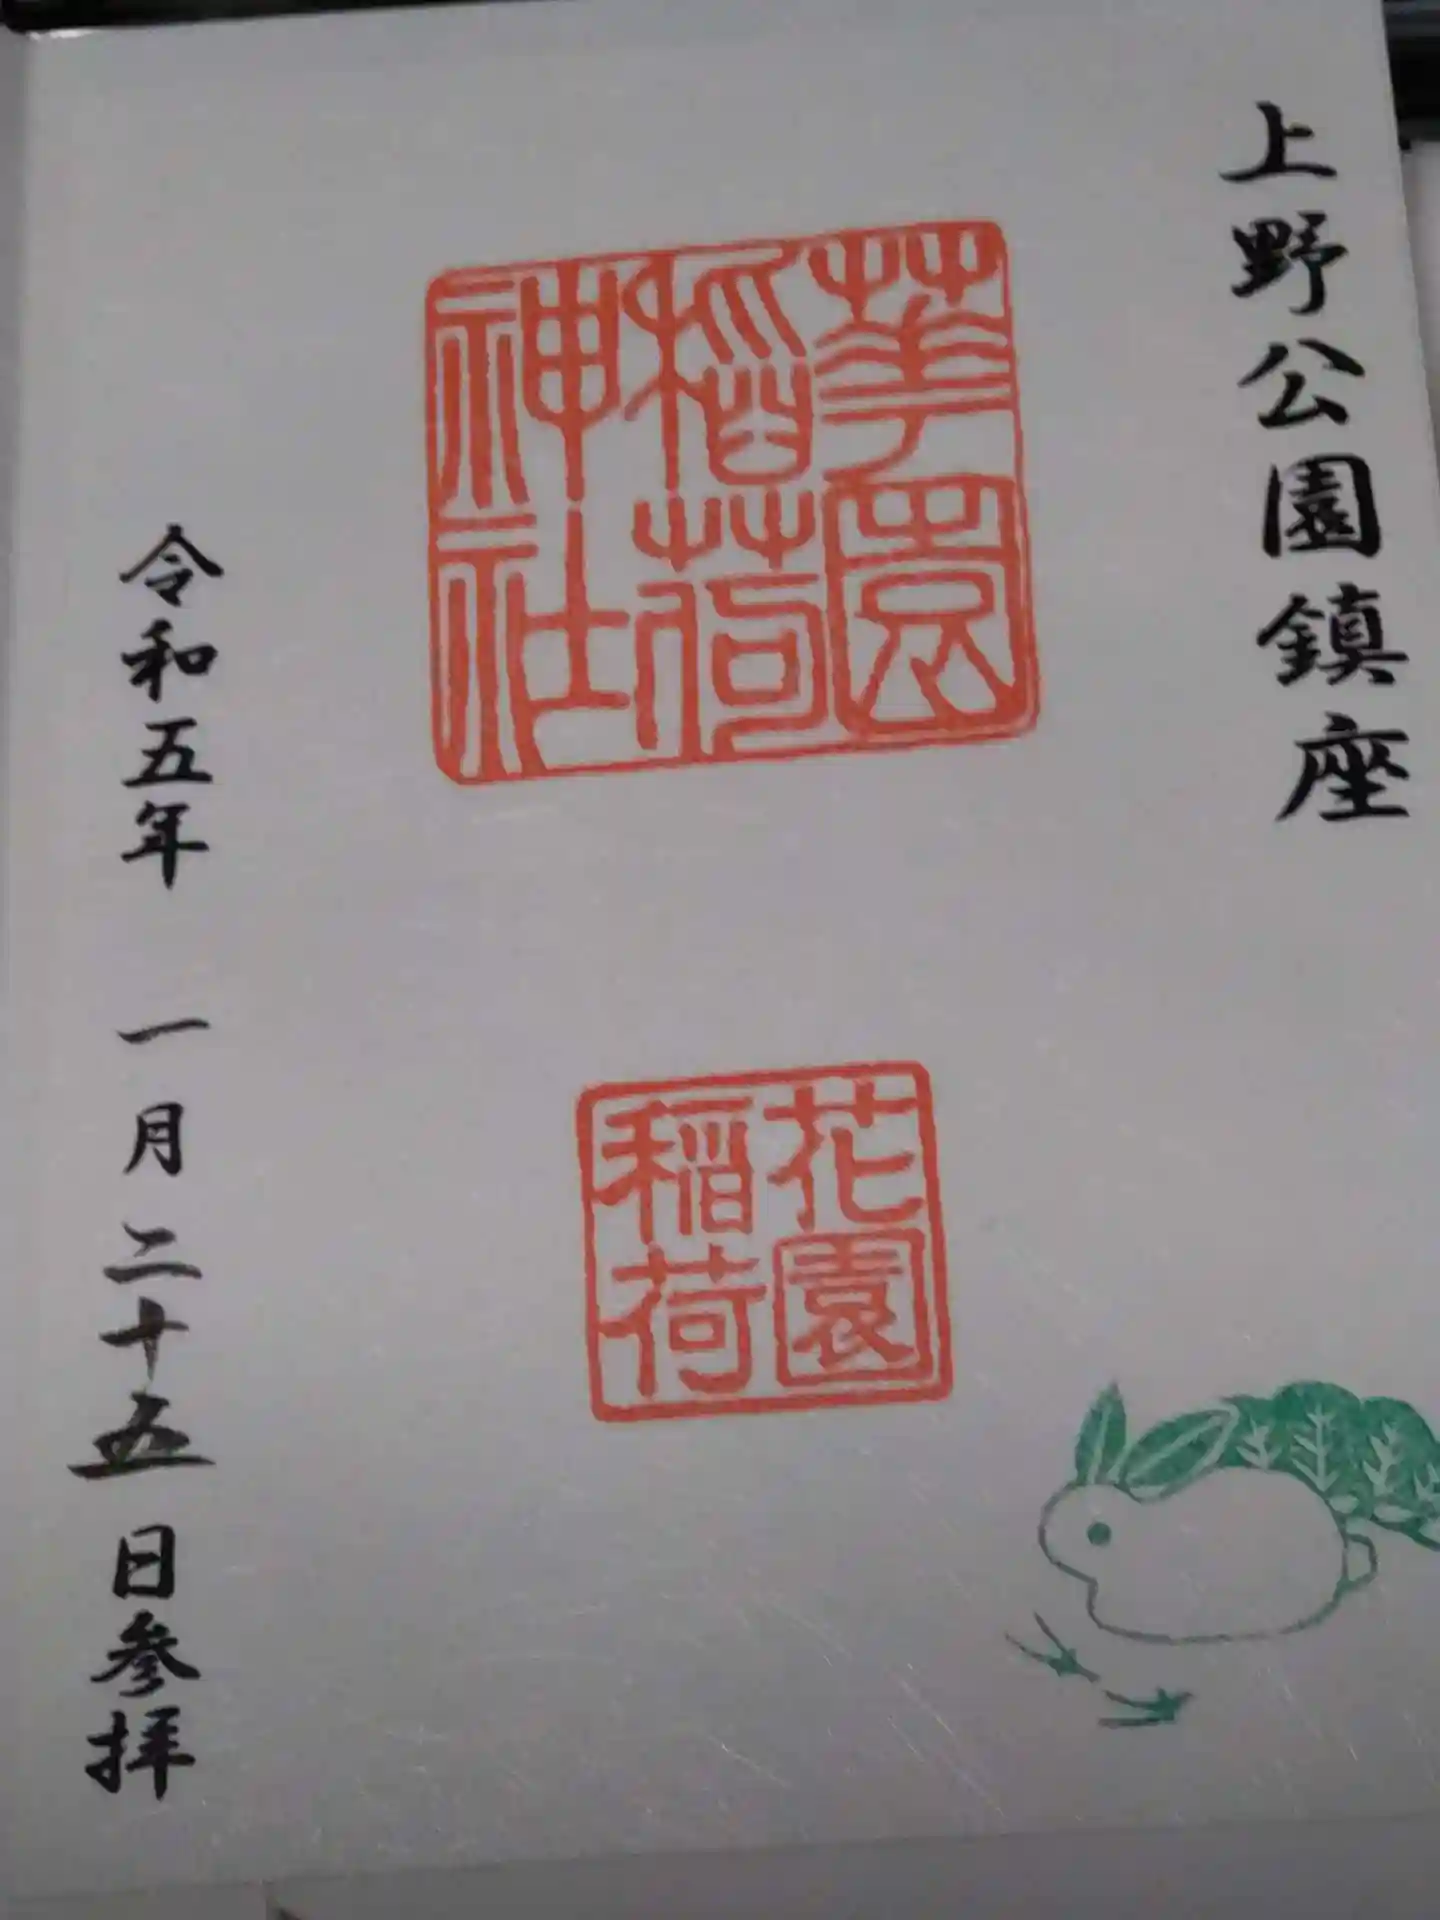 上野公園鎮座
華園
稲荷
神社
花園
稲荷
令和五年 一月二十五日参拝